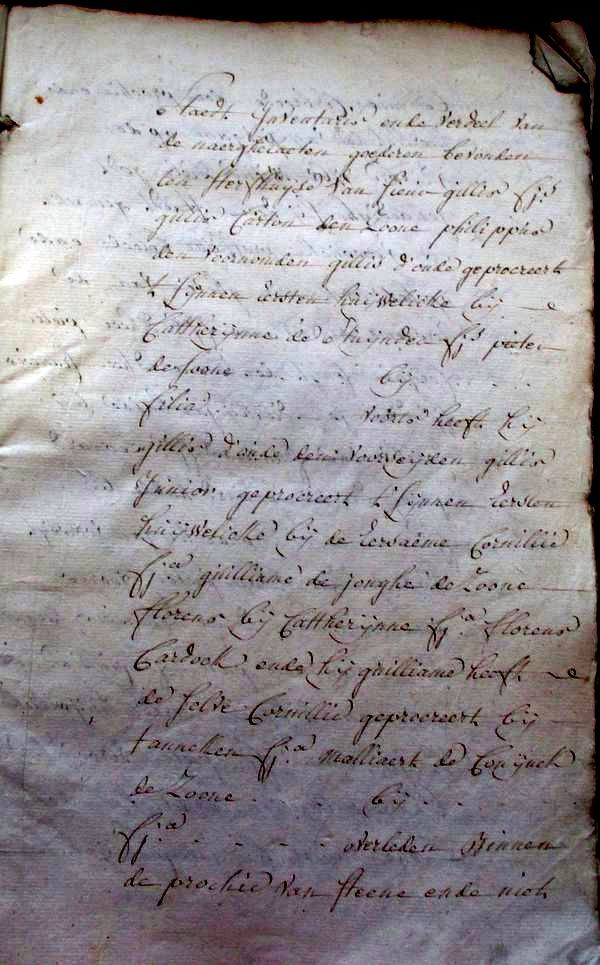 Staedt Inventaris ende verdeel van
de naerghelaeten goederen bevonden
ten sterfhuyse van sieur gillis fs
gillis Carton den Zoone philippus
den voornomden gillis d'oude geprocreert
t' sijnen Eersten huijwelicke bij
Cattherijnne de fs pieter
de Zoone . . . bij . . .
filia . . . voorts heeft hij
gillis d'oude den voorseijden gillis
Junior geprocreert t' sijnen Eersten
huijwelicke bij de Eersaeme Cornillie
fa guilliame de jonghe de Zoone
florens bij Cattherijnne fa florens
Cardock ende hij guilliame heeft
de selve Cornillie geprocreert bij
tanneken fa malliaert de Conijnck
de Zoone . . . bij . . .
fa . . . overleden Binnen
de prochie van steene ende niet